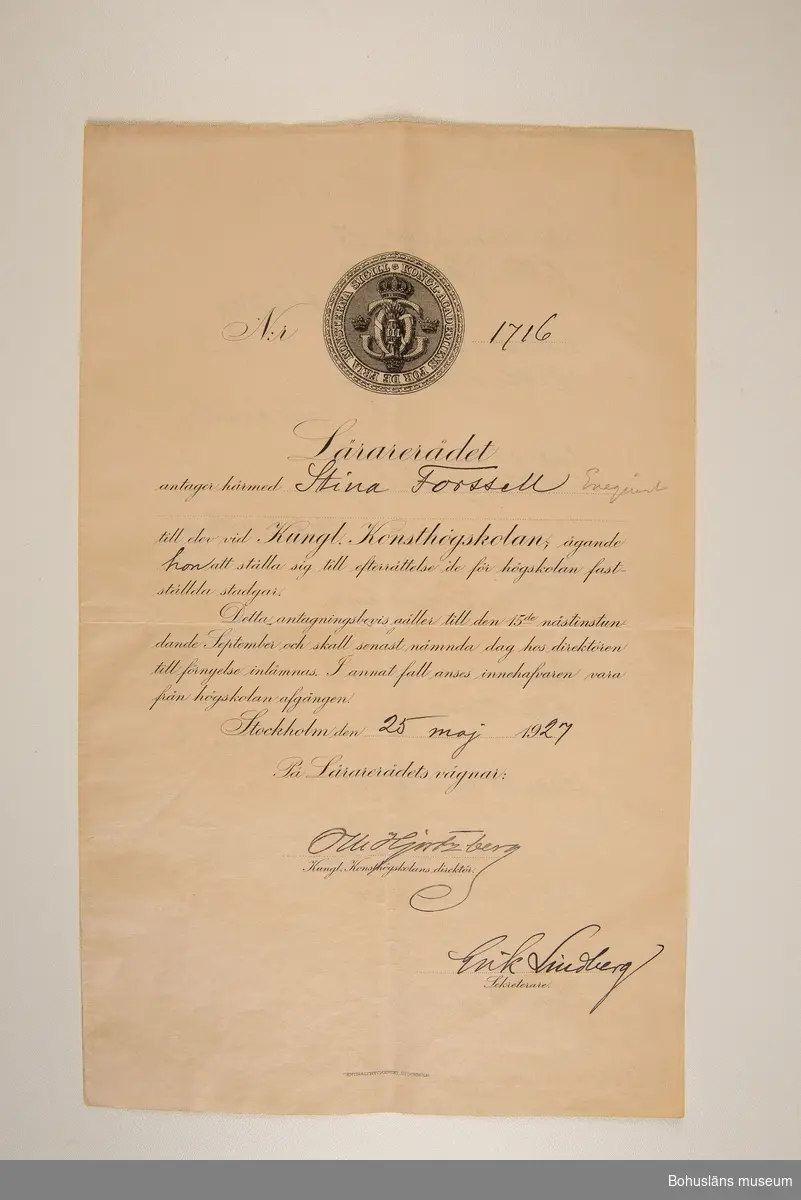 KONGL. ACADEMIENS FÖR DE FRIA KONSTERNA SIGILL
N:r 1716
Lärarerådet
antager härmed Stina Forssell
till elev vid Kungl. Konsthögskolan, ägande
hon att ställa sig till efterrättelse de för högskolan fast-
ställda stadgar.
Detta antagningsbevis gäller till den 15de nästinstun-
dande September och skall senast nämnda dag hos direktören
till förnyelse inlämnas. I annat fall anses innehafvaren vara
från högskolan afgången.
Stockholm den 25 maj 1927
På Lärarerådets vägnar:
Olle Hjortzberg
Kungl. Konsthögskolans direktör.
Erik Lindberg
Sekreterare.
Bohusläns museum